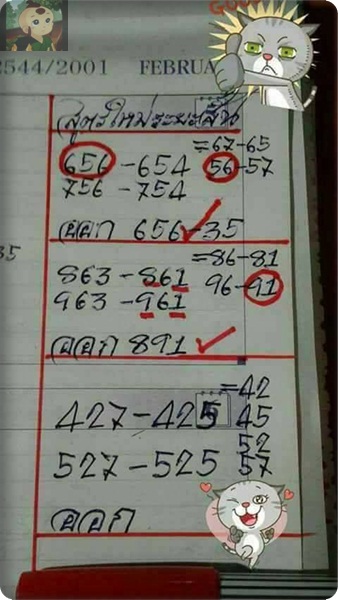 GOOD
2544/2001 FEBRUA
สูตรใหม่ระยะสั้น
=67-65
656-654 56-57
756-754
ออก 656-35
=86-81
863-861 96-91
963-961
ออก 891
=42
427-425 45
52
527-525 57
ออก
35